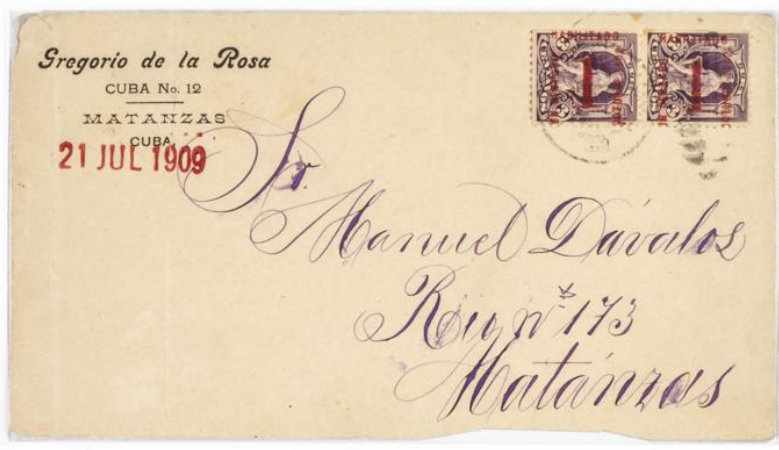 Gregorio de la Rosa
CUBA No. 12
MATANZAS
CUBA.
21 JUL 1909
HABILITADO
1
HABILITADO
1
Sr.
Manuel Dávalos
Rey nº 173
Matánzas